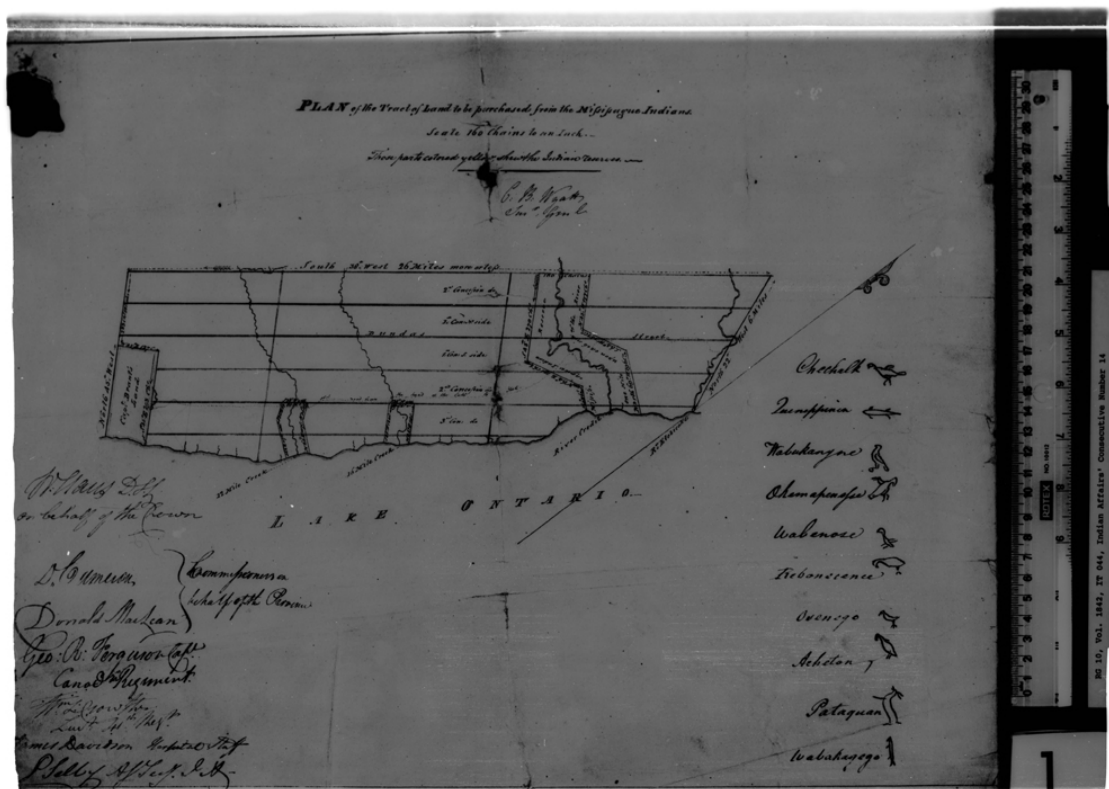 PLAN of the Tract of Land to be purchased from the Missisague Indians.
Scale 160 Chains to an Inch.
Those parts colored yellow shew the Indian reserves
C. B. Wyatt
Survr. Genl.
South 45° West 26 Miles more or less
2d. Concession do
1st. Con. N side
Dundas Street
1st Con. S side
2d. Concession do
3d. Con. do
North 45° West
Capt. Brants Land
River Credit
R. Etobicoke
16 Mile Creek
12 Mile Creek
LAKE ONTARIO
W. Claus D.S.G.
on behalf of the Crown
D. Cameron
Donald MacLean
Commissioners on
behalf of the Province
Geo: R: Ferguson Capt.
Canadn. Regiment
Wm. L. Crowther
Lieut 41st Regt
James Davidson Hospital Staff
P Selby Asst Secy. I.A.
Chechalk
Quenippenon
Wabukanyne
Okemapenesse
Wabenose
Kebonecence
Osenego
Acheton
Pataquan
Wabakagego
RG 10, Vol. 1842, IT 044, Indian Affairs' Consecutive Number 14
ROTEX
1